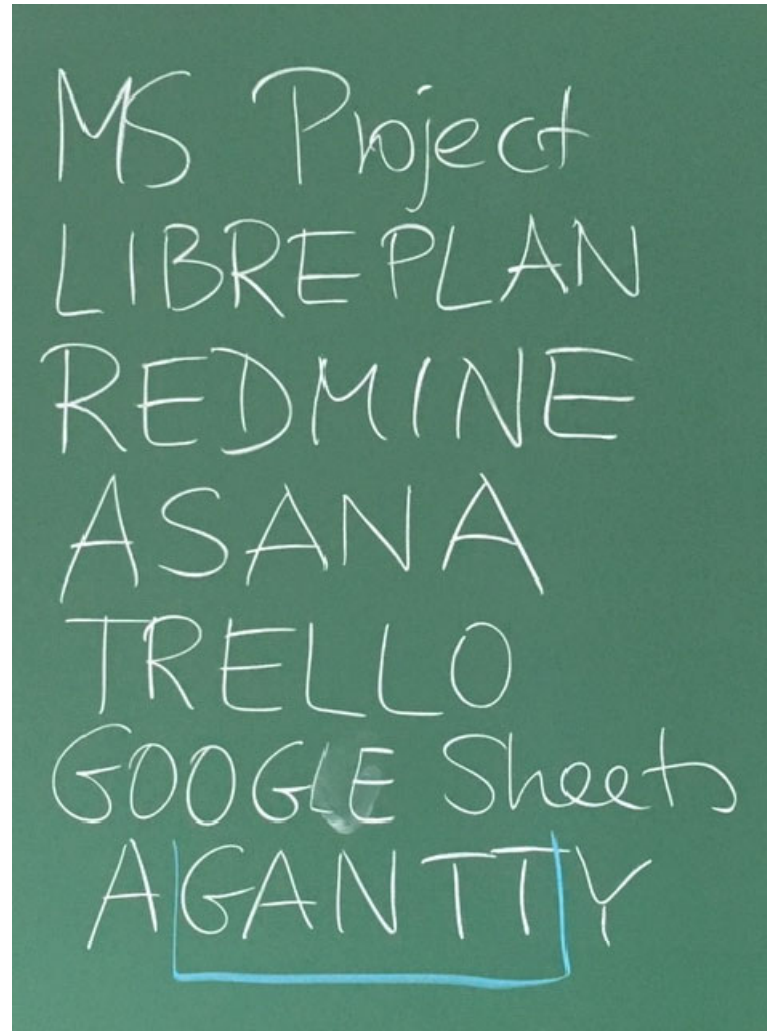 MS Project
LIBREPLAN
REDMINE
ASANA
TRELLO
GOOGLE Sheets
AGANTTY